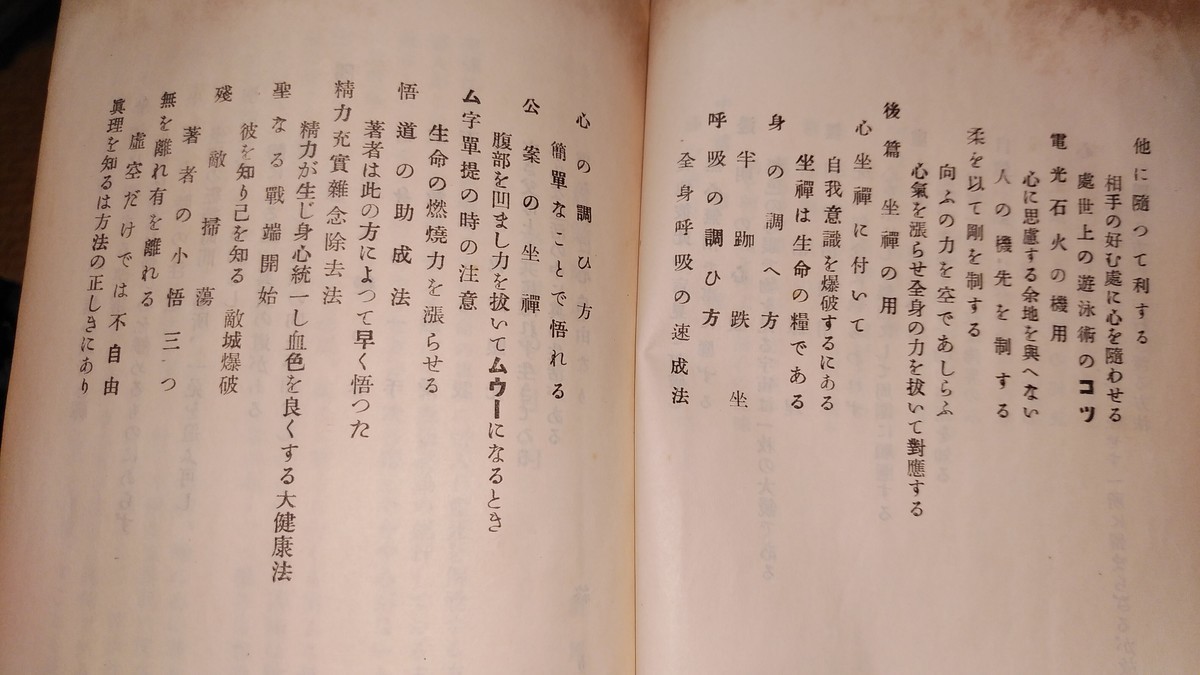 他に隨つて利する
相手の好む處に心を隨わせる
處世上の遊泳術のコツ
電光石火の機用
心に思慮する余地を與へない
人の機先を制する
柔を以て剛を制する
向ふの力を空であしらふ
心氣を漲らせ全身の力を拔いて對應する
後篇 坐禪の用
心坐禪に付いて
自我意識を爆破するにある
坐禪は生命の糧である
身の調へ方
半跏趺坐
呼吸の調ひ方
全身呼吸の速成法
心の調ひ方
簡單なことで悟れる
公案の坐禪
腹部を凹まし力を拔いてムウーになるとき
ム字單提の時の注意
生命の燃燒力を漲らせる
悟道の助成法
著者は此の方によつて早く悟つた
精力充實雜念除去法
精力が生じ身心統一し血色を良くする大健康法
聖なる戰端開始
彼を知り己を知る 敵城爆破
殘敵掃蕩
著者の小悟三つ
無を離れ有を離れる
虛空だけでは不自由
眞理を知るは方法の正しきにあり